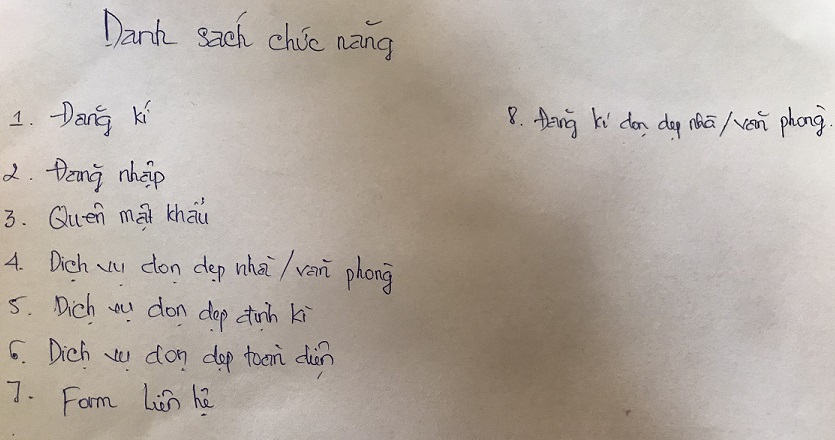 Danh sách chức năng
1. Đăng kí
2. Đăng nhập
3. Quên mật khẩu
4. Dịch vụ dọn dẹp nhà / văn phòng
5. Dịch vụ dọn dẹp định kì
6. Dịch vụ dọn dẹp toàn diện
7. Form liên hệ
8. Đăng kí dọn dẹp nhà / văn phòng.